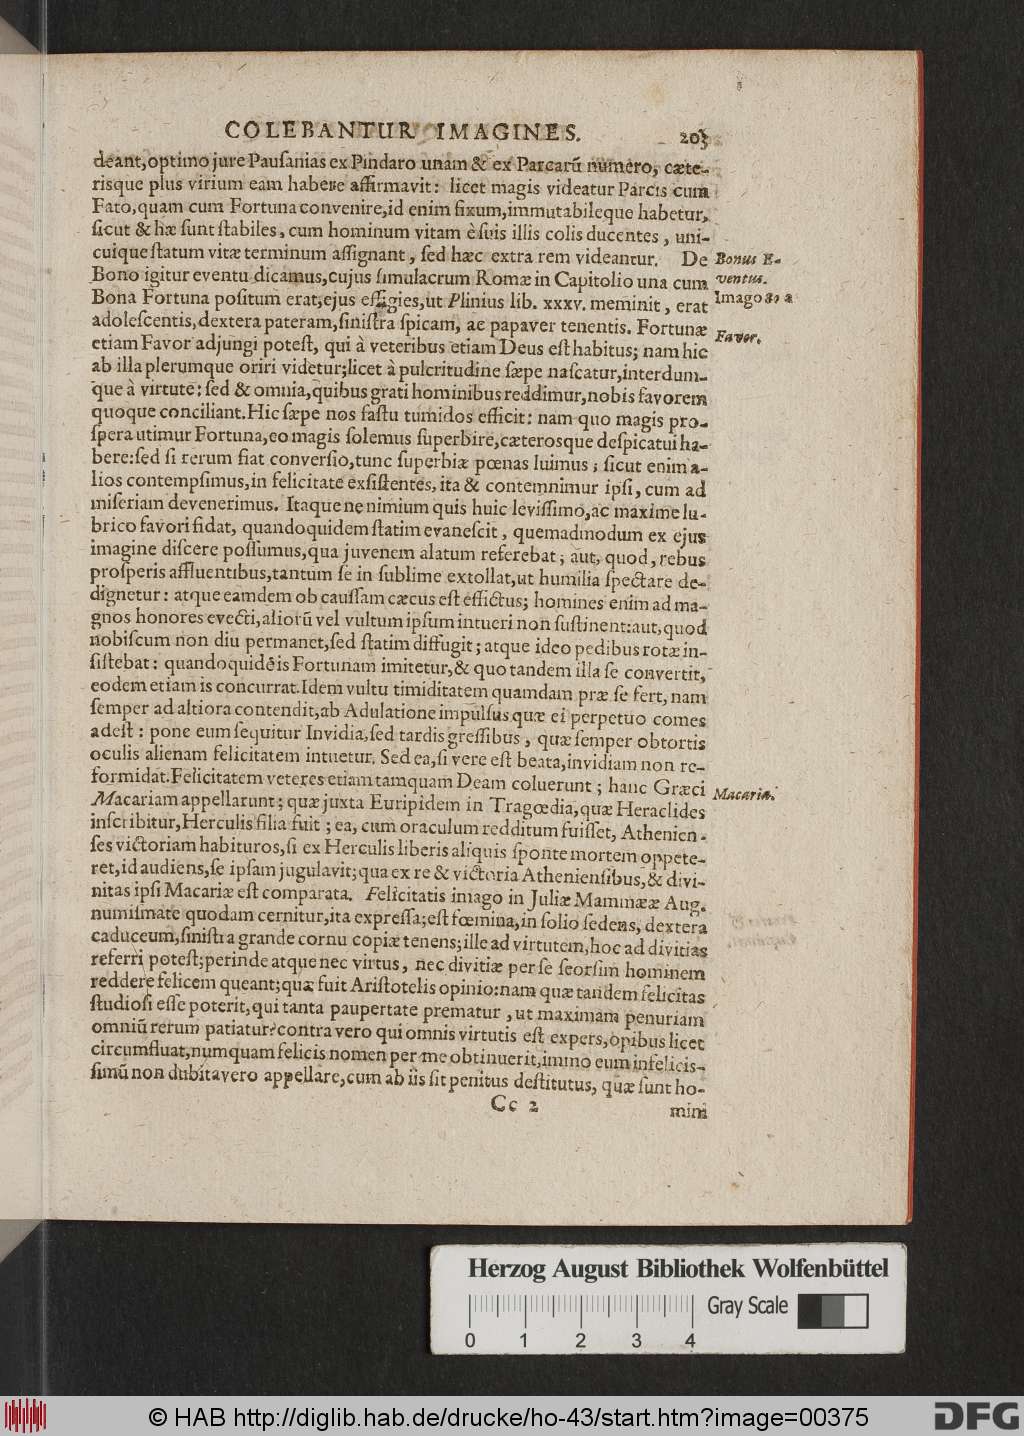 COLEBANTUR IMAGINES. 203
deant, optimo jure Pauſanias ex Pindaro unam & ex Parcarũ numero, cæte-
risque plus virium eam habere affirmavit: licet magis videatur Parcis cum
Fato, quam cum Fortuna convenire, id enim fixum, immutabileque habetur,
ſicut & hæ ſunt ſtabiles, cum hominum vitam è ſuis illis colis ducentes, uni-
cuique ſtatum vitæ terminum aſſignant, ſed hæc extra rem videantur. De
Bonus E-
Bono igitur eventu dicamus, cujus ſimulacrum Romæ in Capitolio una cum
ventus.
Bona Fortuna poſitum erat; ejus effigies, ut Plinius lib. xxxv. meminit, erat
Imago 80 a
adoleſcentis, dextera pateram, ſiniſtra ſpicam, ac papaver tenentis. Fortunæ
etiam Favor adjungi poteſt, qui à veteribus etiam Deus eſt habitus; nam hic
Favor.
ab illa plerumque oriri videtur; licet à pulcritudine ſæpe naſcatur, interdum-
que à virtute: ſed & omnia, quibus grati hominibus reddimur, nobis favorem
quoque conciliant. Hic ſæpe nos faſtu tumidos efficit: nam quo magis pro-
ſpera utimur Fortuna, eo magis ſolemus ſuperbire, cæterosque deſpicatui ha-
bere: ſed ſi rerum fiat converſio, tunc ſuperbiæ pœnas luimus; ſicut enim a-
lios contempſimus, in felicitate exſiſtentes, ita & contemnimur ipſi, cum ad
miſeriam devenerimus. Itaque ne nimium quis huic leviſſimo, ac maxime lu-
brico favori fidat, quandoquidem ſtatim evaneſcit, quemadmodum ex ejus
imagine diſcere poſſumus, qua juvenem alatum referebat; aut, quod, rebus
proſperis affluentibus, tantum ſe in ſublime extollat, ut humilia ſpectare de-
dignetur: atque eamdem ob cauſſam cæcus eſt effictus; homines enim ad ma-
gnos honores evecti, aliorũ vel vultum ipſum intueri non ſuſtinent: aut, quod
nobiſcum non diu permanet, ſed ſtatim diffugit; atque ideo pedibus rotæ in-
ſiſtebat: quandoquidẽ is Fortunam imitetur, & quo tandem illa ſe convertit,
eodem etiam is concurrat. Idem vultu timiditatem quamdam præ ſe fert, nam
ſemper ad altiora contendit, ab Adulatione impulſus quæ ei perpetuo comes
adeſt: pone eum ſequitur Invidia, ſed tardis greſſibus, quæ ſemper obtortis
oculis alienam felicitatem intuetur. Sed ea, ſi vere eſt beata, invidiam non re-
formidat. Felicitatem veteres etiam tamquam Deam coluerunt; hanc Græci
Macaria.
Macariam appellarunt; quæ juxta Euripidem in Tragœdia, quæ Heraclides
inſcribitur, Herculis filia fuit; ea, cum oraculum redditum fuiſſet, Athenien-
ſes victoriam habituros, ſi ex Herculis liberis aliquis ſponte mortem oppete-
ret, id audiens, ſe ipſam jugulavit; qua ex re & victoria Athenienſibus, & divi-
nitas ipſi Macariæ eſt comparata. Felicitatis imago in Juliæ Mammææ Aug.
numiſmate quodam cernitur, ita expreſſa; eſt fœmina, in ſolio ſedens, dextera
caduceum, ſiniſtra grande cornu copiæ tenens; ille ad virtutem, hoc ad divitias
referri poteſt; perinde atque nec virtus, nec divitiæ per ſe ſeorſim hominem
reddere felicem queant; quæ fuit Ariſtotelis opinio: nam quæ tandem felicitas
ſtudioſi eſſe poterit, qui tanta paupertate prematur, ut maximam penuriam
omniũ rerum patiatur? contra vero qui omnis virtutis eſt expers, opibus licet
circumfluat, numquam felicis nomen per me obtinuerit, immo eum infelicis-
ſimũ non dubitavero appellare, cum ab iis ſit penitus deſtitutus, quæ ſunt ho-
Cc 2 mini
Herzog August Bibliothek Wolfenbüttel
Gray Scale
0 1 2 3 4
© HAB http://diglib.hab.de/drucke/ho-43/start.htm?image=00375
DFG